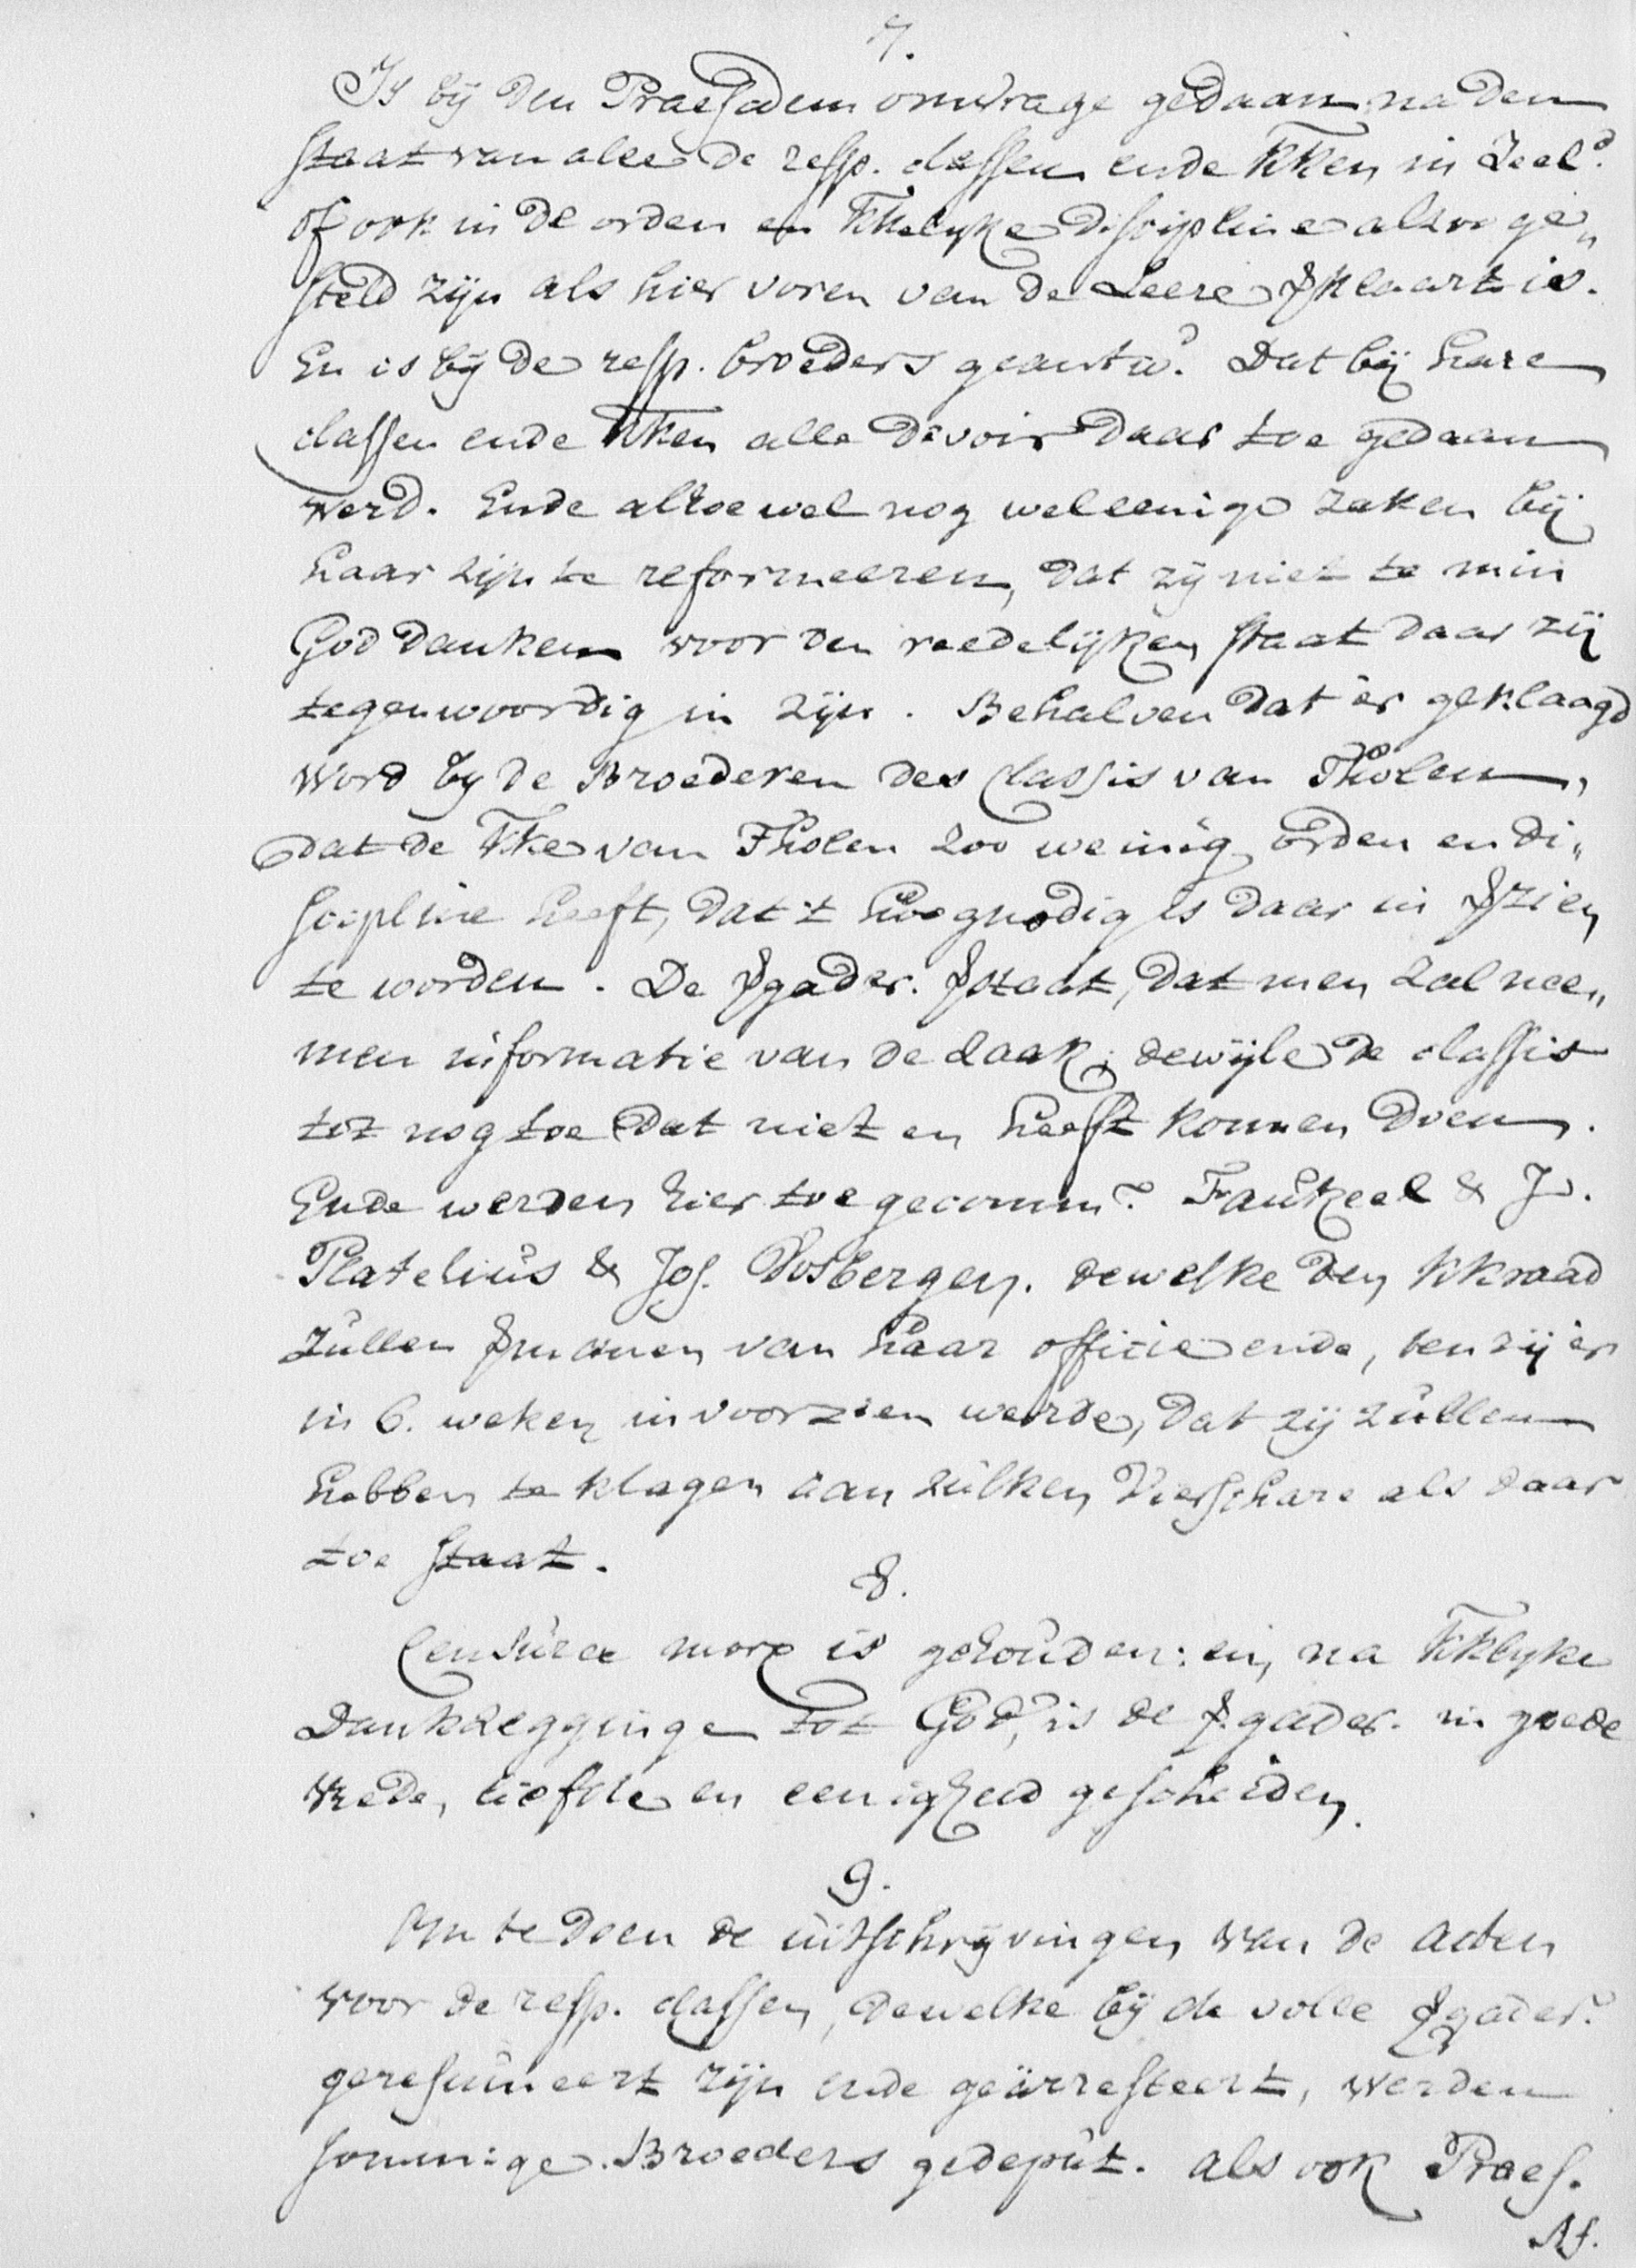 7.
Is bij den Praesidem omvrage gedaan na den
staat van alle de resp. classen ende kken in Zeel.d
of ook in de orden en kkelyke discipline alzoo ge„
steld zijn als hier voren van de Leere vklaart is.
En is bij de resp. broeders geantw.d Dat bij hare
classen ende kken alle devoir daar toe gedaan
werd. Ende alhoewel nog wel eenige zaken bij
haar zijn te reformeeren, dat zij niet te min
God danken voor den reedelijken staat daar zij
tegenwoordig in zijn. Behalven dat er geklaagd
word by de Broederen des classis van Tholen,
dat de kke van Tholen zoo weinig orden en di„
scipline heeft, dat 't hoognodig is daar in vzien
te worden. De vgader. vstaat, dat men zal nee„
men informatie van de zaak; dewijle de classis
tot nog toe dat niet en heeft konnen doen.
Ende werden hier toe gecomm.d Faukeel & J.
Platelius & Jos. Vosbergen. dewelke den kkraad
zullen vmanen van haar officie ende, ten zij er
in 6. weken in voorzien werde, dat zij zullen
hebben te klagen aan zulken Vierschare als daar
toe staat.
8.
Censura mor is gehouden: en, na kklyke
Dankzegginge tot God, is de vgader. in goede
vrede, liefde en eenigheid gescheiden.
9.
Om te doen de uitschrijvingen van de acten
voor de resp. classen, dewelke bij de volle vgader.
geresumeert zijn ende geärresteert, werden
sommige Broeders gedeput. als ook Praes.
As.